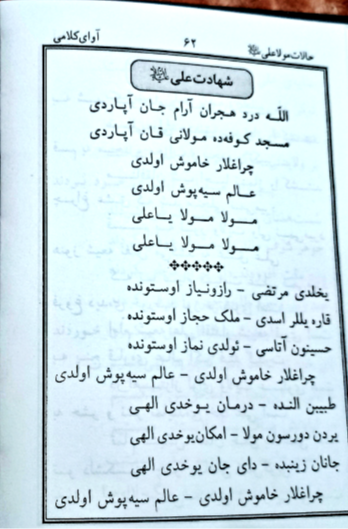 آوای کلامی
۶۲
حالات مولا علی
شهادت علی
اللّه درد هجران آرام جان آپاردی
مسجد کوفه‌ده مولانی قان آپاردی
چراغلار خاموش اولدی
عالم سیه‌پوش اولدی
مولا مولا یاعلی
مولا مولا یاعلی
یخلدی مرتضی - رازونیاز اوستونده
قاره یللر اسدی - ملک حجاز اوستونده
حسینون آتاسی - ئولدی نماز اوستونده
چراغلار خاموش اولدی - عالم سیه‌پوش اولدی
طبیبن النده - درمان یوخدی الهی
یردن دورسون مولا - امکان‌یوخدی الهی
جانان زینبده - دای جان یوخدی الهی
چراغلار خاموش اولدی - عالم سیه‌پوش اولدی